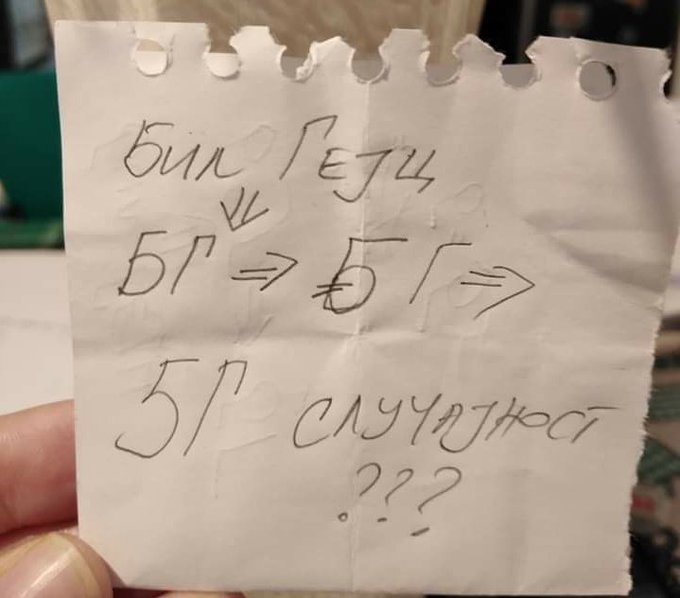 Бил Гејц
⇓
БГ ⇒ Б Г ⇒
5Г случајност
???